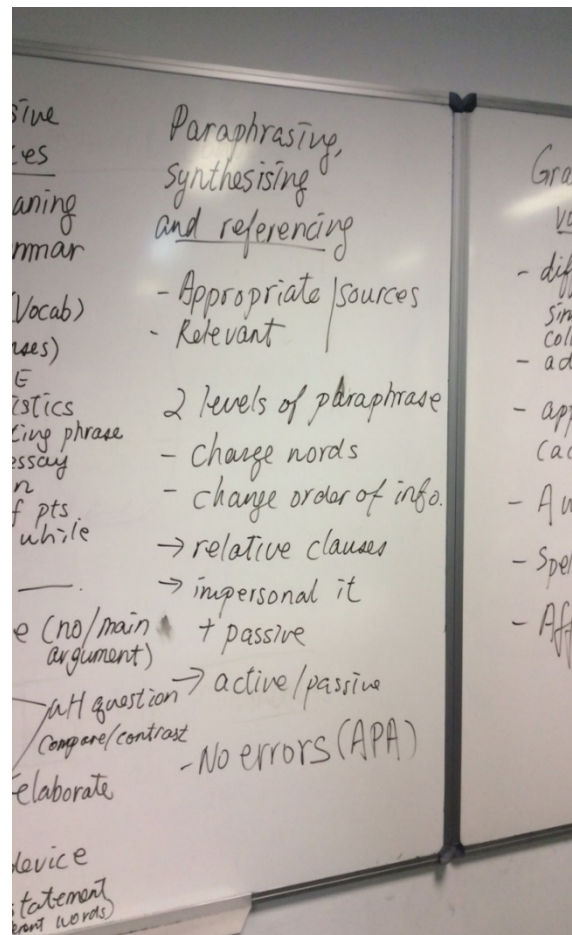 sive
ces
aning
mmar
(Vocab)
uses)
E
istics
ting phrase
essay
n
f pts.
while
e (no/main
argument)
WH question
compare/contrast
elaborate
device
statement
erent words)
Paraphrasing,
synthesising
and referencing
- Appropriate / sources
- Relevant
2 levels of paraphrase
- change words
- change order of info.
→ relative clauses
→ impersonal it
+ passive
→ active/passive
- No errors (APA)
Gra
vo
- diff
sim
coll
- ad
- app
(ac
- A w
- Spe
- Aff